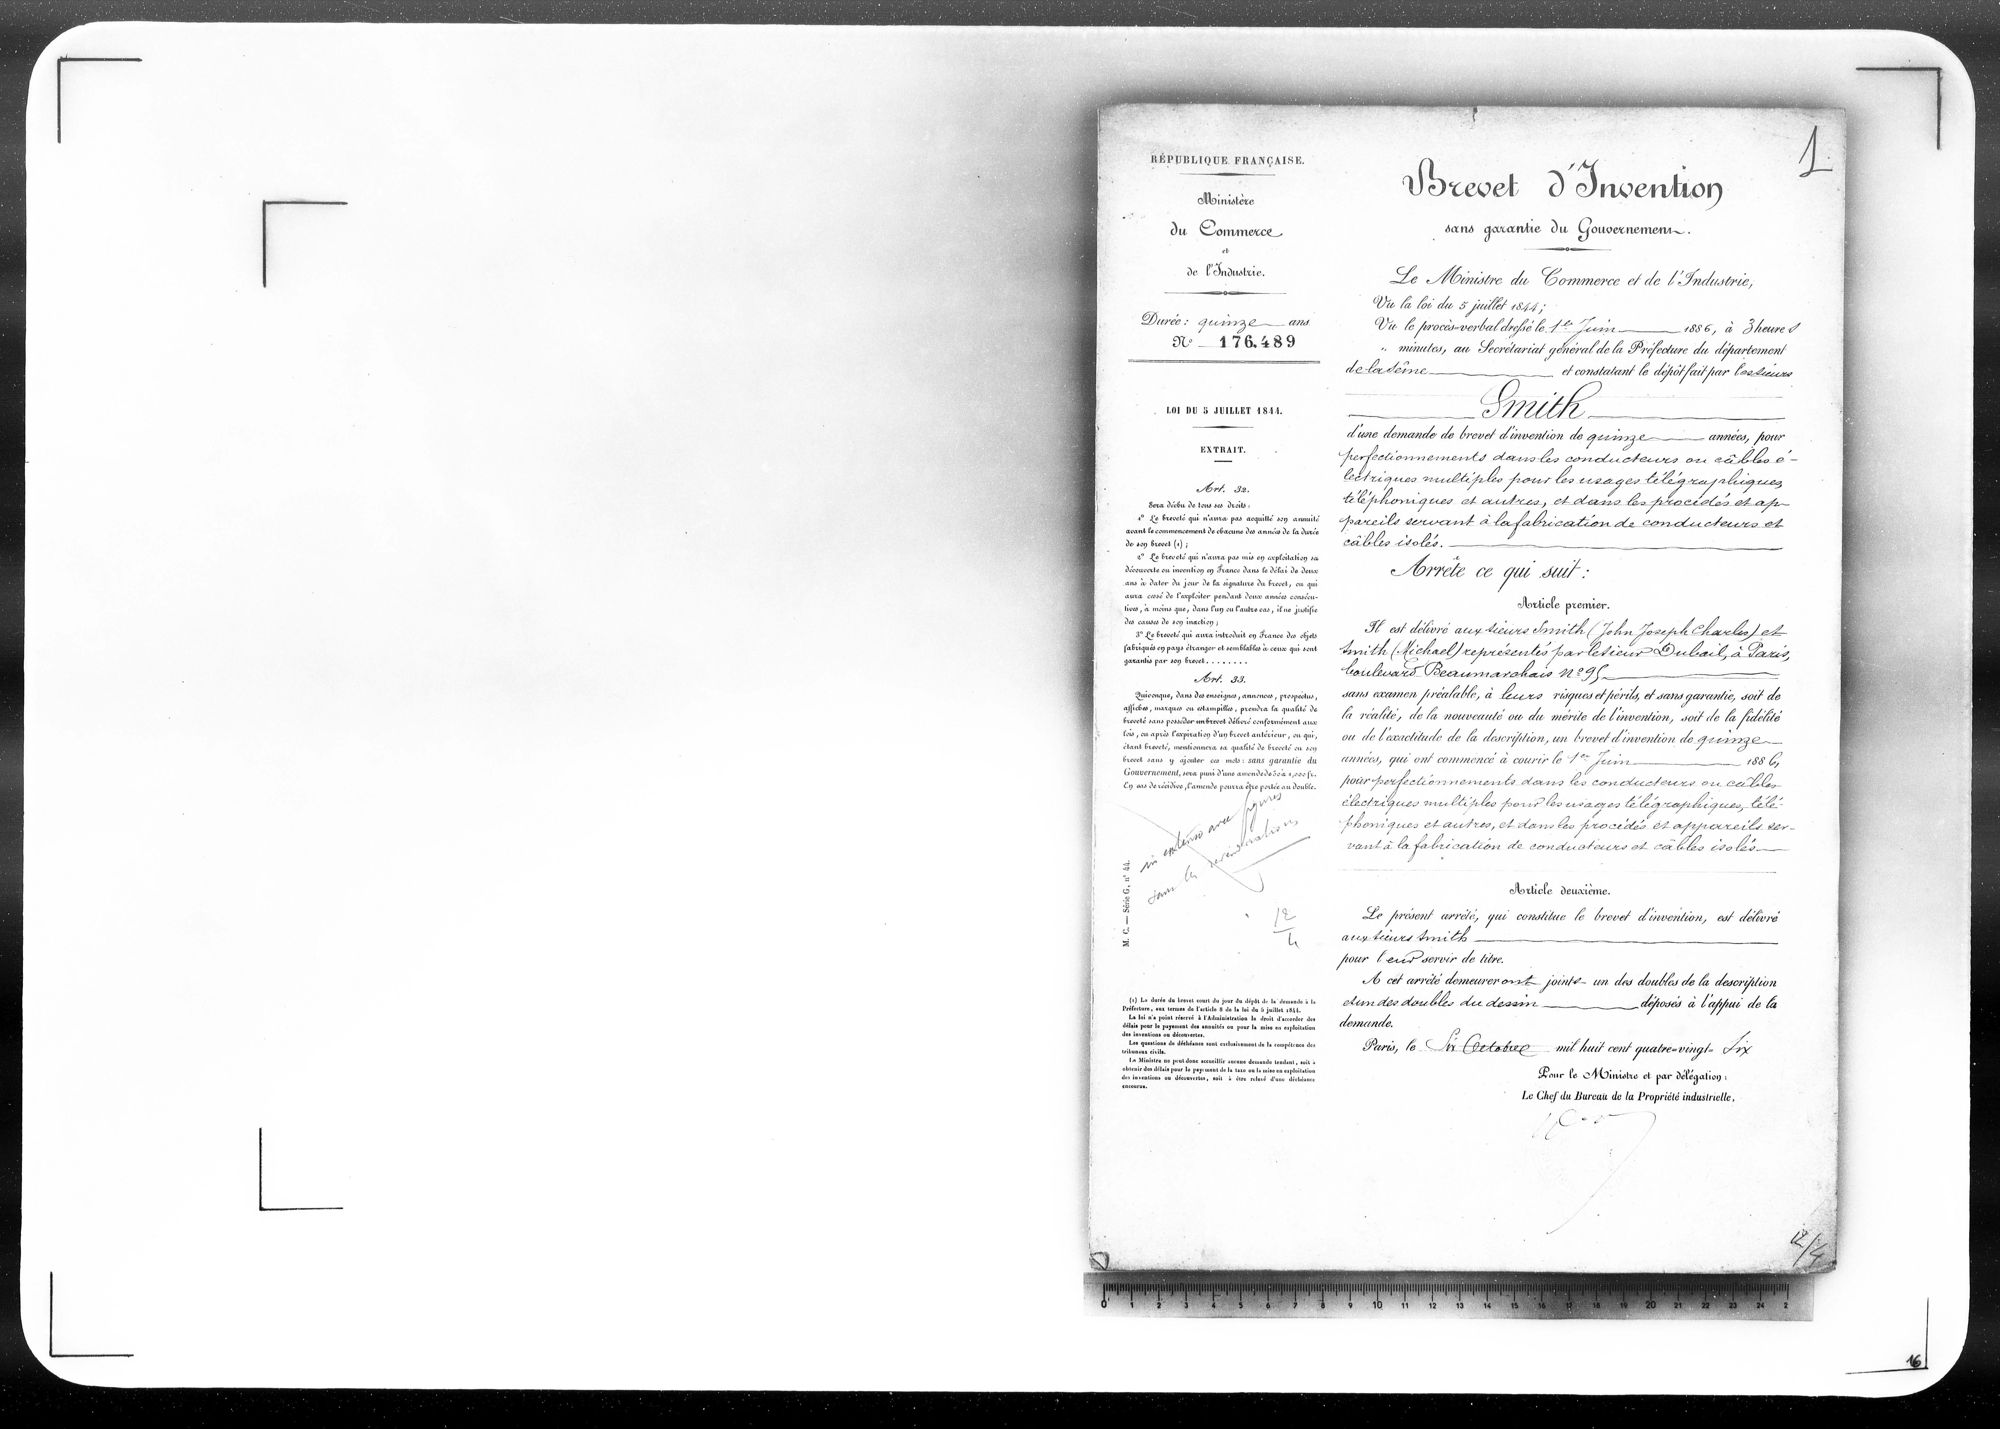 1
RÉPUBLIQUE FRANÇAISE.
Ministère
du Commerce
et
de l'Industrie.
Durée : quinze ans
N° 176,489
LOI DU 5 JUILLET 1844.
EXTRAIT.
Art. 32.
Sera déchu de tous ses droits :
1° Le breveté qui n'aura pas acquitté son annuité
avant le commencement de chacune des années de la durée
de son brevet (1) ;
2° Le breveté qui n'aura pas mis en exploitation sa
découverte ou invention en France dans le délai de deux
ans à dater du jour de la signature du brevet, ou qui
aura cessé de l'exploiter pendant deux années consécu-
tives, à moins que, dans l'un ou l'autre cas, il ne justifie
des causes de son inaction ;
3° Le breveté qui aura introduit en France des objets
fabriqués en pays étranger et semblables à ceux qui sont
garantis par son brevet........
Art. 33.
Quiconque, dans des enseignes, annonces, prospectus,
affiches, marques ou estampilles, prendra la qualité de
breveté sans posséder un brevet délivré conformément aux
lois, ou après l'expiration d'un brevet antérieur, ou qui,
étant breveté, mentionnera sa qualité de breveté ou son
brevet sans y ajouter ces mots : sans garantie du
Gouvernement, sera puni d'une amende de 50 à 1,000 fr.
En cas de récidive, l'amende pourra être portée au double.
in extenso avec figures
sans les revendications
12
4
M. C. — Série G, n° 44.
(1) La durée du brevet court du jour du dépôt de la demande à la
Préfecture, aux termes de l'article 8 de la loi du 5 juillet 1844.
La loi n'a point réservé à l'Administration le droit d'accorder des
délais pour le payement des annuités ou pour la mise en exploitation
des inventions ou découvertes.
Les questions de déchéance sont exclusivement de la compétence des
tribunaux civils.
Le Ministre ne peut donc accueillir aucune demande tendant, soit à
obtenir des délais pour le payement de la taxe ou la mise en exploitation
des inventions ou découvertes, soit à être relevé d'une déchéance
encourue.
Brevet d'Invention
sans garantie du Gouvernement.
Le Ministre du Commerce et de l'Industrie,
Vu la loi du 5 juillet 1844 ;
Vu le procès-verbal dressé le 1er Juin 1886, à 3 heures
" minutes, au Secrétariat général de la Préfecture du département
de la Seine et constatant le dépôt fait par les sieurs
Smith
d'une demande de brevet d'invention de quinze années, pour
perfectionnements dans les conducteurs ou câbles é-
lectriques multiples pour les usages télégraphiques,
téléphoniques et autres, et dans les procédés et ap
pareils servant à la fabrication de conducteurs et
câbles isolés.
Arrête ce qui suit :
Article premier.
Il est délivré aux sieurs Smith (John Joseph Charles) et
Smith (Michael) représentés par le sieur Dubail, à Paris,
boulevard Beaumarchais n° 95
sans examen préalable, à leurs risques et périls, et sans garantie, soit de
la réalité, de la nouveauté ou du mérite de l'invention, soit de la fidélité
ou de l'exactitude de la description, un brevet d'invention de quinze
années, qui ont commencé à courir le 1er Juin 1886,
pour perfectionnements dans les conducteurs ou câbles
électriques multiples pour les usages télégraphiques, télé-
phoniques et autres, et dans les procédés et appareils ser-
vant à la fabrication de conducteurs et câbles isolés
Article deuxième.
Le présent arrêté, qui constitue le brevet d'invention, est délivré
aux sieurs Smith
pour leur servir de titre.
A cet arrêté demeureront joints un des doubles de la description
et un des doubles du dessin déposés à l'appui de la
demande.
Paris, le Six Octobre mil huit cent quatre-vingt-Six
Pour le Ministre et par délégation :
Le Chef du Bureau de la Propriété industrielle,
12/4
0 1 2 3 4 5 6 7 8 9 10 11 12 13 14 15 16 17 18 19 20 21 22 23 24 2
16